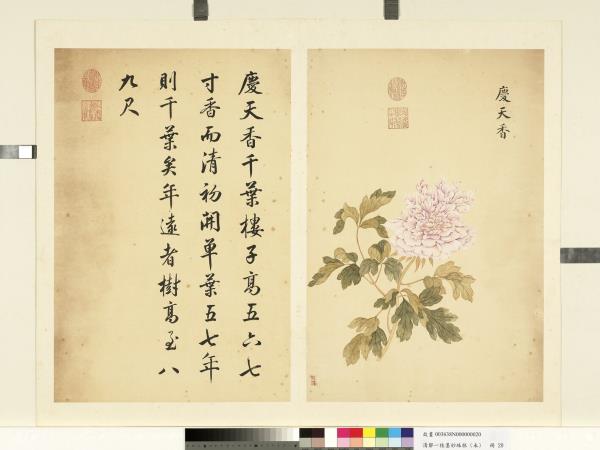 慶天香千葉樓子高五六七
寸香而清初開單葉五七年
則千葉矣年遠者樹高至八
九尺
慶天香
故畫 003638N000000020
清鄒一桂墨妙珠林(未) 冊 20